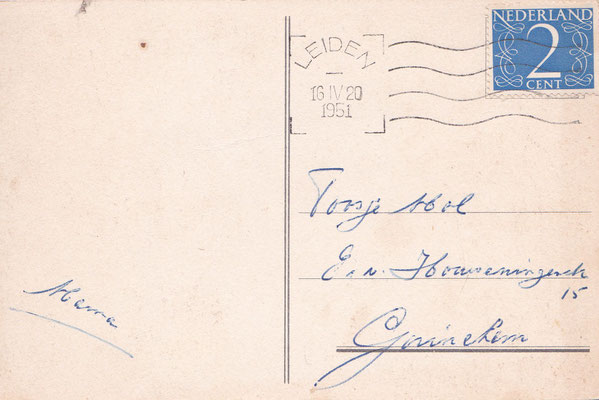 LEIDEN
16 IV 20
1951
NEDERLAND
2
CENT
Toosje Mol
E. v. Houweningestr
15
Gorinchem
Mama